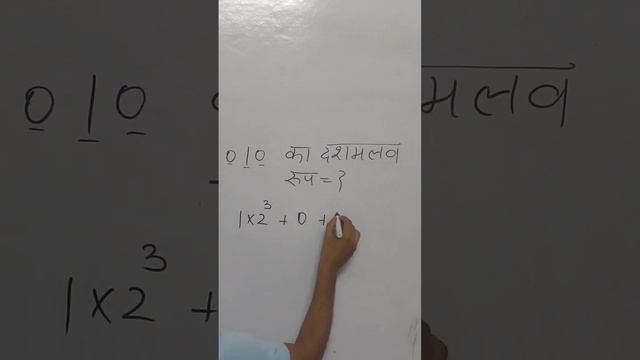 010 का दशमलव
रूप = ?
1×2³ + 0 +